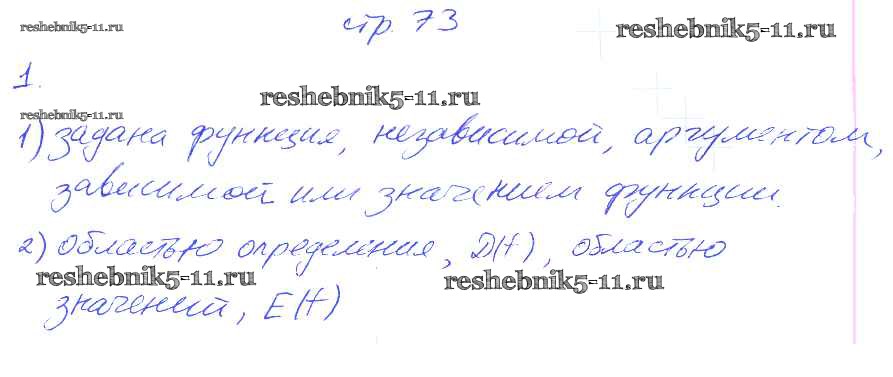 reshebnik5-11.ru
стр. 73
reshebnik5-11.ru
1.
reshebnik5-11.ru
reshebnik5-11.ru
1) задана функция, независимой, аргументом,
зависимой или значением функции.
2) областью определения, D(f), областью
reshebnik5-11.ru
reshebnik5-11.ru
значений, E(f)